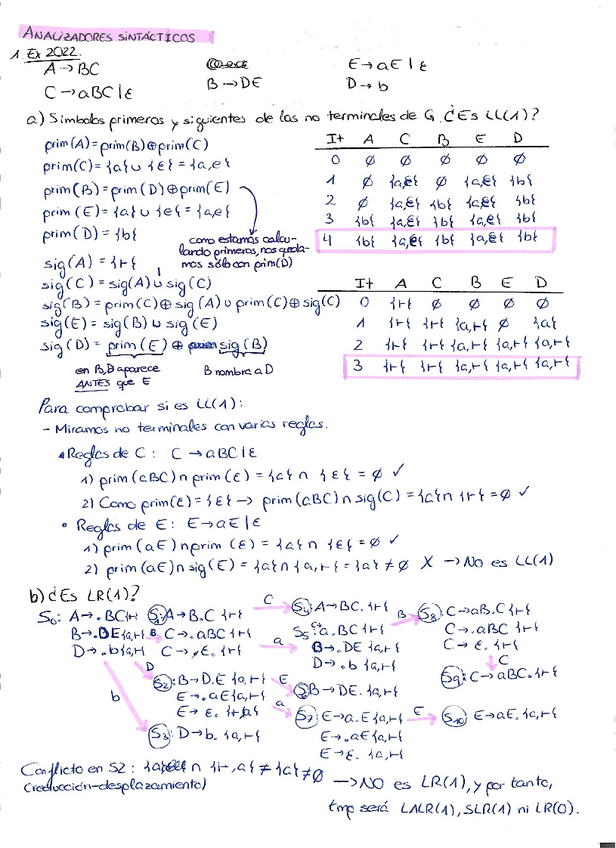 ANALIZADORES SINTÁCTICOS
1. Ex 2022.
A → BC
E → aE | ε
C → aBC | ε
B → DE
D → b
a) Símbolos primeros y siguientes de los no terminales de G. ¿Es LL(1)?
prim(A) = prim(B) ⊕ prim(C)
prim(C) = {a} ∪ {ε} = {a,ε}
prim(B) = prim(D) ⊕ prim(E)
prim(E) = {a} ∪ {ε} = {a,ε}
prim(D) = {b}
como estamos calcu-
lando primeros, nos queda-
mos sólo con prim(D)
It A C B E D
0 ∅ ∅ ∅ ∅ ∅
1 ∅ {a,ε} ∅ {a,ε} {b}
2 ∅ {a,ε} {b} {a,ε} {b}
3 {b} {a,ε} {b} {a,ε} {b}
4 {b} {a,ε} {b} {a,ε} {b}
sig(A) = {⊣}
sig(C) = sig(A) ∪ sig(C)
sig(B) = prim(C) ⊕ sig(A) ∪ prim(C) ⊕ sig(C)
sig(E) = sig(B) ∪ sig(E)
sig(D) = prim(E) ⊕ sig(B)
en B, D aparece
ANTES que E
B nombra a D
It A C B E D
0 {⊣} ∅ ∅ ∅ ∅
1 {⊣} {⊣} {a,⊣} ∅ {a}
2 {⊣} {⊣} {a,⊣} {a,⊣} {a,⊣}
3 {⊣} {⊣} {a,⊣} {a,⊣} {a,⊣}
Para comprobar si es LL(1):
- Miramos no terminales con varias reglas.
• Reglas de C: C → aBC | ε
1) prim(aBC) ∩ prim(ε) = {a} ∩ {ε} = ∅ ✓
2) Como prim(ε) = {ε} → prim(aBC) ∩ sig(C) = {a} ∩ {⊣} = ∅ ✓
• Reglas de E: E → aE | ε
1) prim(aE) ∩ prim(ε) = {a} ∩ {ε} = ∅ ✓
2) prim(aE) ∩ sig(E) = {a} ∩ {a,⊣} = {a} ≠ ∅ X → No es LL(1)
b) ¿Es LR(1)?
S0: A → .BC {⊣}
B → .DE {a,⊣}
D → .b {a,⊣}
B
S1: A → B.C {⊣}
C → .aBC {⊣}
C → ε. {⊣}
C
S4: A → BC. {⊣}
a
S5: C → a.BC {⊣}
B → .DE {a,⊣}
D → .b {a,⊣}
B
S8: C → aB.C {⊣}
C → .aBC {⊣}
C → ε. {⊣}
C
S9: C → aBC. {⊣}
D
S2: B → D.E {a,⊣}
E → .aE {a,⊣}
E → ε. {⊣,a}
E
B → DE. {a,⊣}
a
S7: E → a.E {a,⊣}
E → .aE {a,⊣}
E → ε. {a,⊣}
E
S10: E → aE. {a,⊣}
b
S3: D → b. {a,⊣}
Conflicto en S2: {a} ∩ {⊣,a} ≠ {a} ≠ ∅
(reducción-desplazamiento)
→ NO es LR(1), y por tanto,
tmp será LALR(1), SLR(1) ni LR(0).